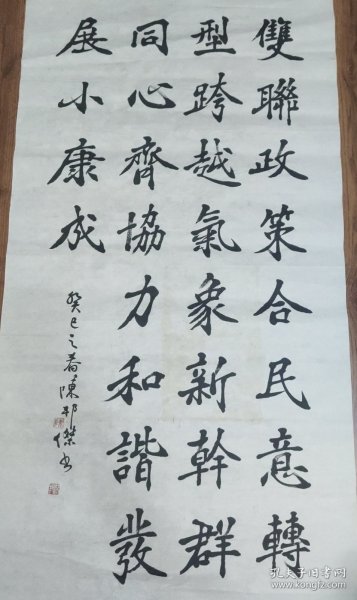 雙聯政策合民意轉
型跨越氣象新幹群
同心齊協力和諧發
展小康成
癸巳之春陳邦傑作
孔夫子旧书网